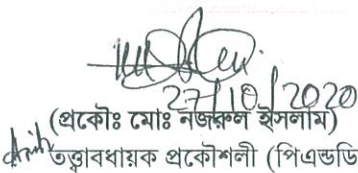 27/10/2020
(প্রকৌঃ মোঃ নজরুল ইসলাম)
তত্ত্বাবধায়ক প্রকৌশলী (পিএন্ডডি